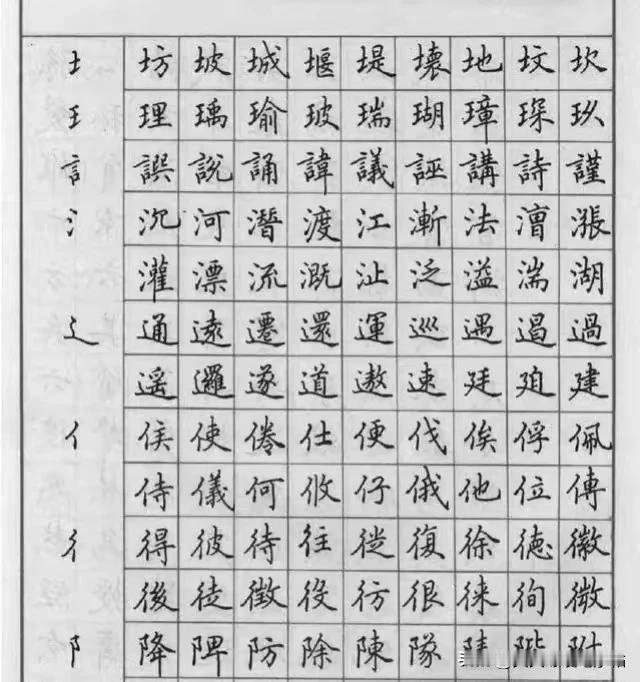 土 坊 坡 城 堰 堤 壞 地 坟 坎
王 理 瑀 瑜 玻 瑞 瑚 璋 琛 玖
訁 誤 說 誦 諱 議 誣 講 詩 謹
氵 沉 河 潛 渡 江 漸 法 漕 漲
灌 漂 流 溉 沚 泛 溢 湍 湖
辶 通 遠 遷 還 運 巡 遇 遏 過
遥 邏 遂 道 遨 速 廷 迫 建
亻 侯 使 倦 仕 便 伐 俟 俘 佩
侍 儀 何 攸 仔 俄 他 位 傅
彳 得 彼 待 往 從 復 徐 德 徽
後 徒 徵 役 彷 很 徠 徇 微
阝 降 陴 防 除 陳 隊 附